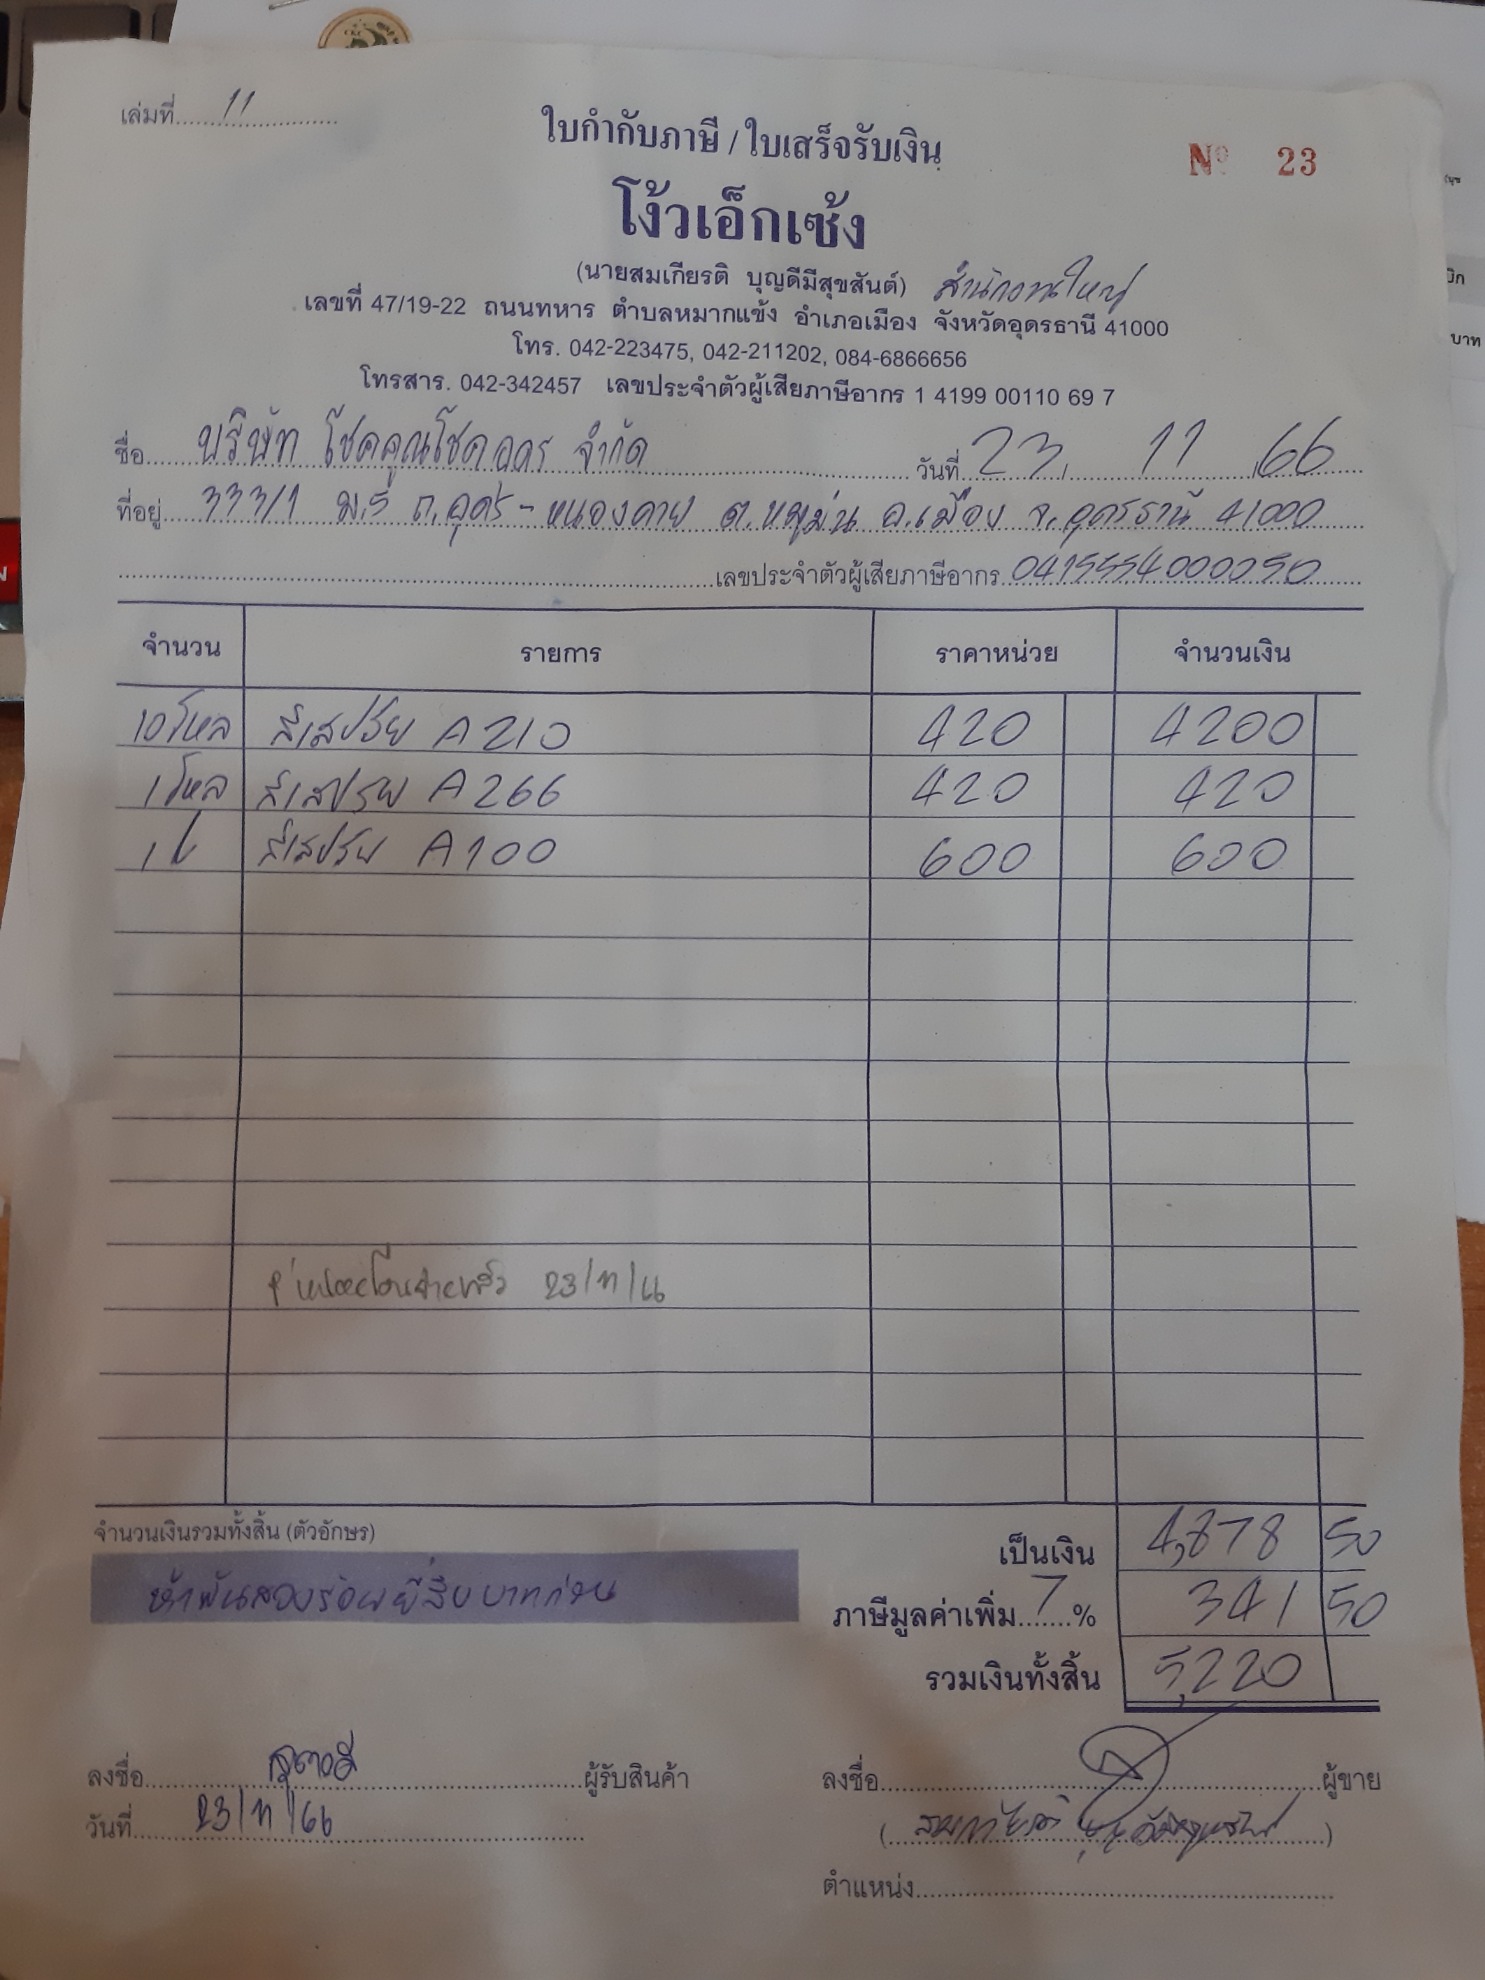 เล่มที่ 11
ใบกำกับภาษี / ใบเสร็จรับเงิน
Nº 23
โง้วเอ็กเซ้ง
(นายสมเกียรติ บุญดีมีสุขสันต์) สำนักงานใหญ่
เลขที่ 47/19-22 ถนนทหาร ตำบลหมากแข้ง อำเภอเมือง จังหวัดอุดรธานี 41000
โทร. 042-223475, 042-211202, 084-6866656
โทรสาร. 042-342457 เลขประจำตัวผู้เสียภาษีอากร 1 4199 00110 69 7
ชื่อ บริษัท โชคคูณโชค จำกัด วันที่ 23 / 11 / 66
ที่อยู่ 333/1 ม.5 ถ.อุดร - หนองคาย ต.หมูม่น อ.เมือง จ.อุดรธานี 41000
เลขประจำตัวผู้เสียภาษีอากร
จำนวน รายการ ราคาหน่วย จำนวนเงิน
10 โหล สีสเปรย์ A210 420 4200
1 โหล สีสเปรย์ A266 420 420
สีสเปรย์ A100 600 600
23/11/66
จำนวนเงินรวมทั้งสิ้น (ตัวอักษร)
ห้าพันสองร้อยยี่สิบบาทถ้วน
เป็นเงิน 4,878 50
ภาษีมูลค่าเพิ่ม 7 % 341 50
รวมเงินทั้งสิ้น 5,220
ลงชื่อ ผู้รับสินค้า
วันที่ 23/11/66
ลงชื่อ ผู้ขาย
( )
ตำแหน่ง